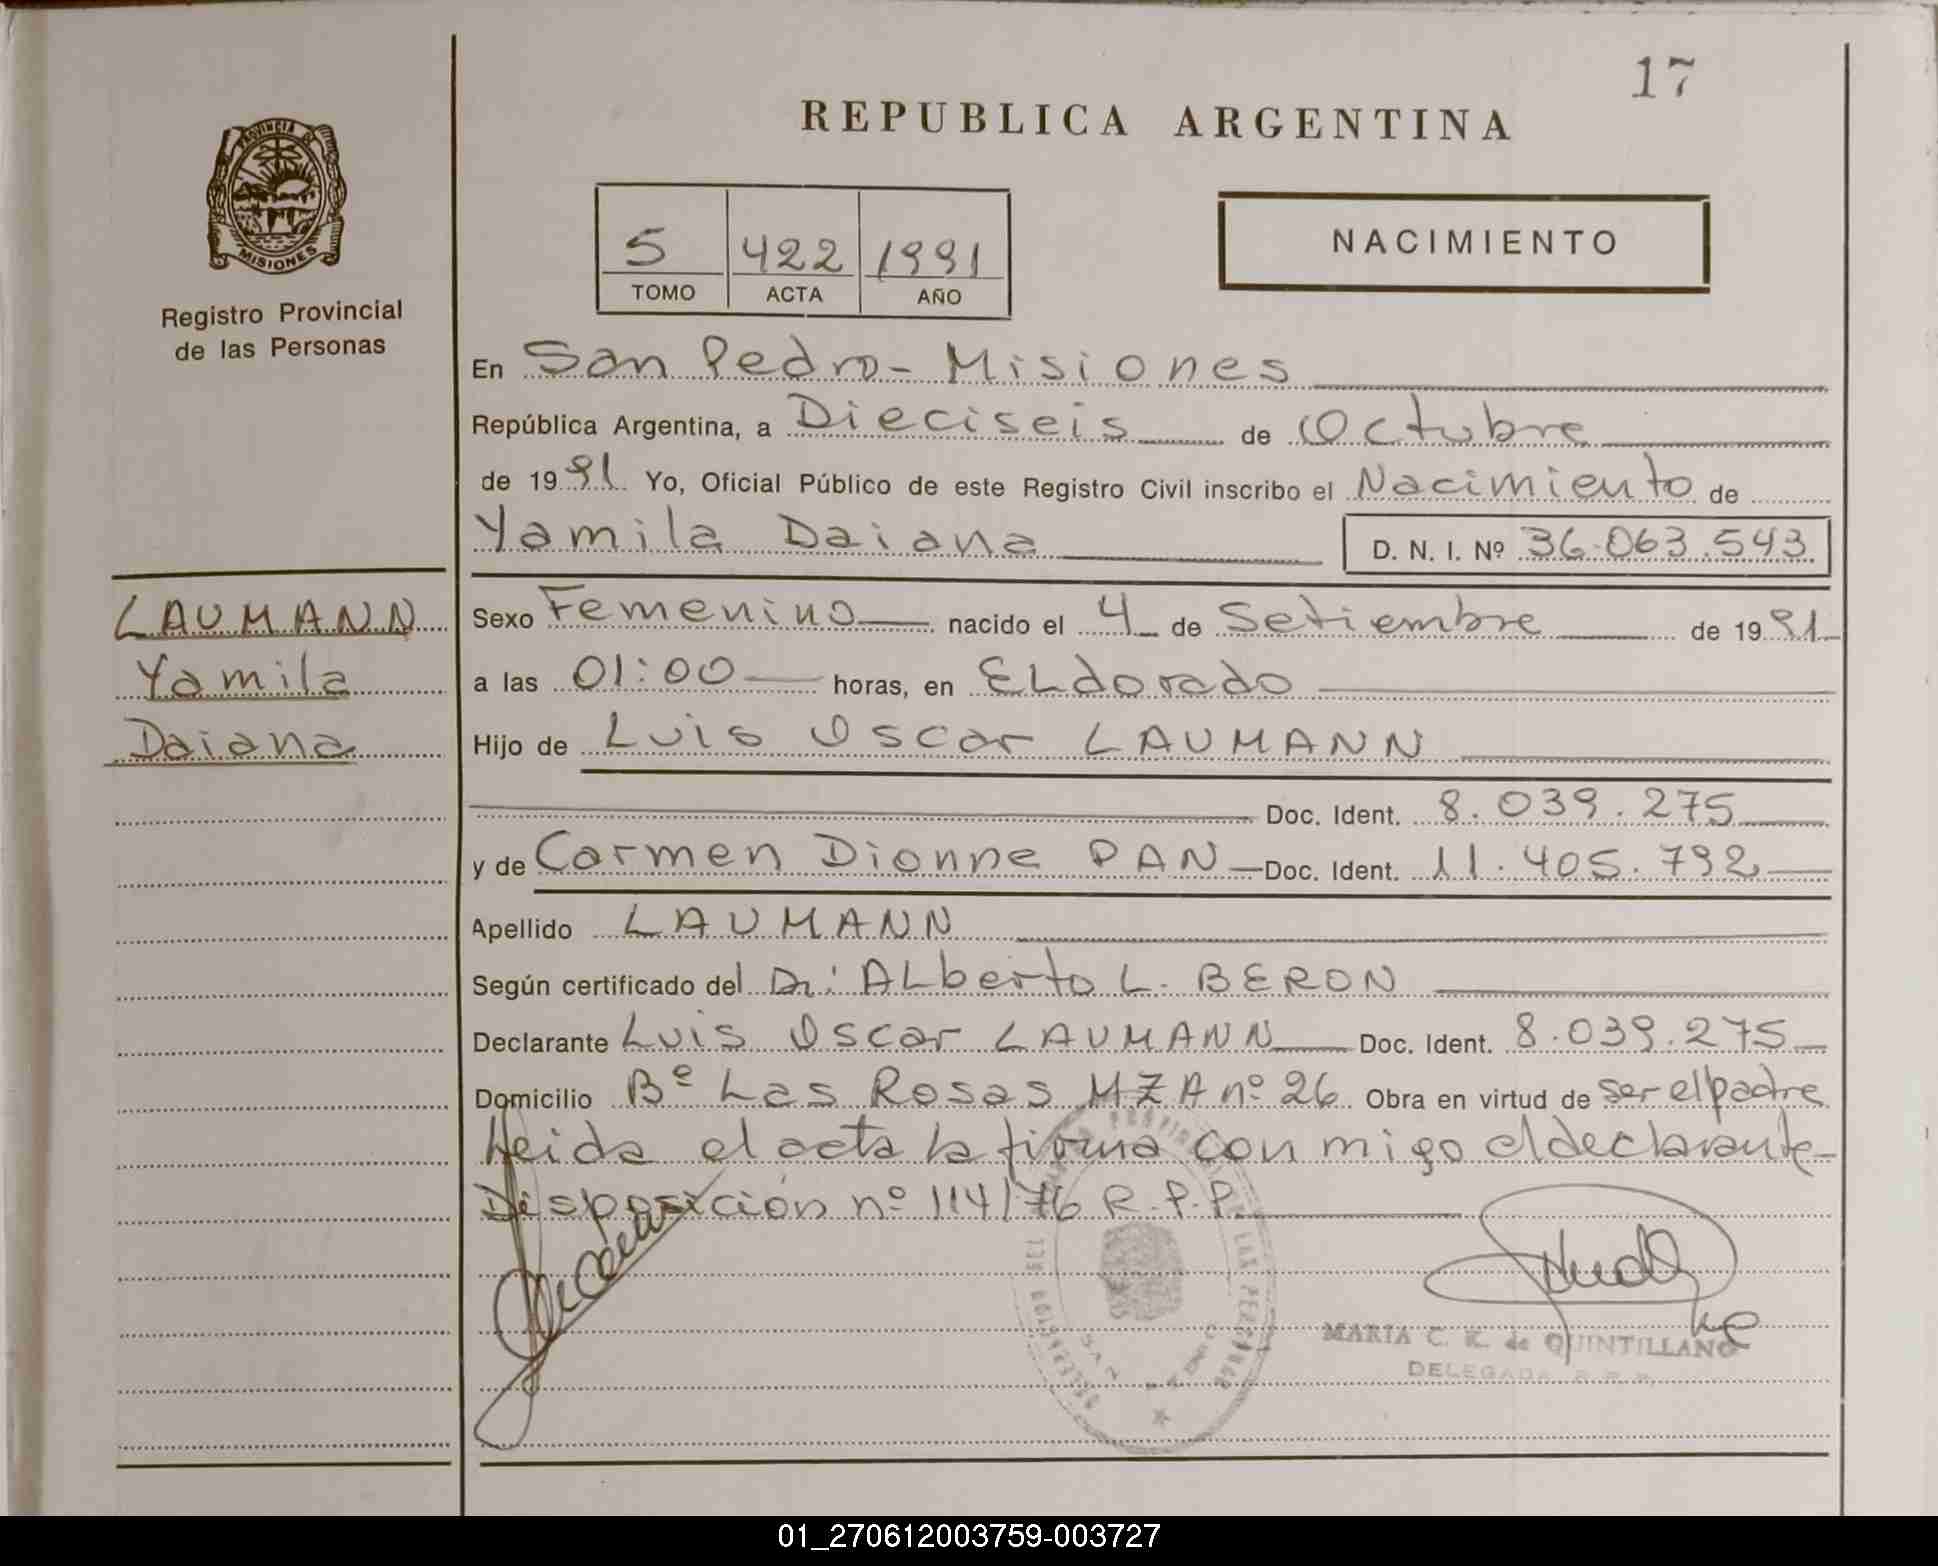 17
REPUBLICA ARGENTINA
PROVINCIA DE
MISIONES
Registro Provincial
de las Personas
5 422 1991
TOMO ACTA AÑO
NACIMIENTO
En San Pedro - Misiones
República Argentina, a Dieciseis de Octubre
de 1991 Yo, Oficial Público de este Registro Civil inscribo el Nacimiento de
Yamila Daiana D. N. I. Nº 36.063.543
LAUMANN
Yamila
Daiana
Sexo Femenino nacido el 4 de Setiembre de 1991
a las 01:00 horas, en ELdorado
Hijo de Luis Oscar LAUMANN
Doc. Ident. 8.039.275
y de Carmen Dionne PAN Doc. Ident. 11.405.792
Apellido LAUMANN
Según certificado del Dr: ALberto L. BERON
Declarante Luis Oscar LAUMANN Doc. Ident. 8.039.275
Domicilio Bº Las Rosas MZA nº 26 Obra en virtud de ser el padre
Leida el acta la firma con migo el declarante
Disposición nº 114/76 R.P.P.
MARIA C. K. de QUINTILLANO
DELEGADA R.P.P.
01_270612003759-003727